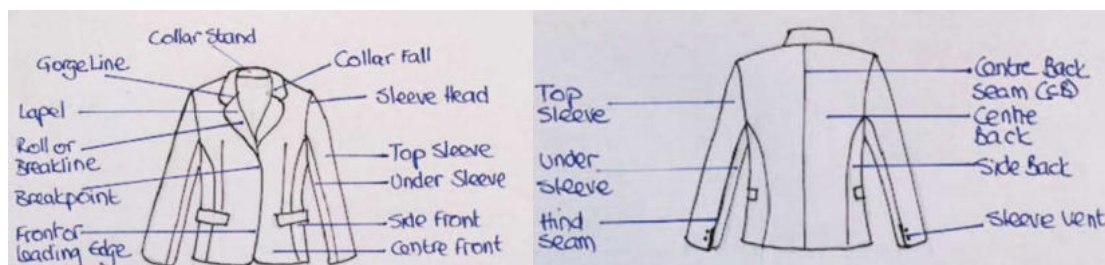 Collar Stand
Gorge Line
Collar Fall
Lapel
Sleeve Head
Roll or
Breakline
Top Sleeve
Under Sleeve
Breakpoint
Side Front
Front or
leading Edge
Centre Front
Top
Sleeve
Under
Sleeve
Hind
Seam
Centre Back
Seam (CB)
Centre
Back
Side Back
Sleeve Vent